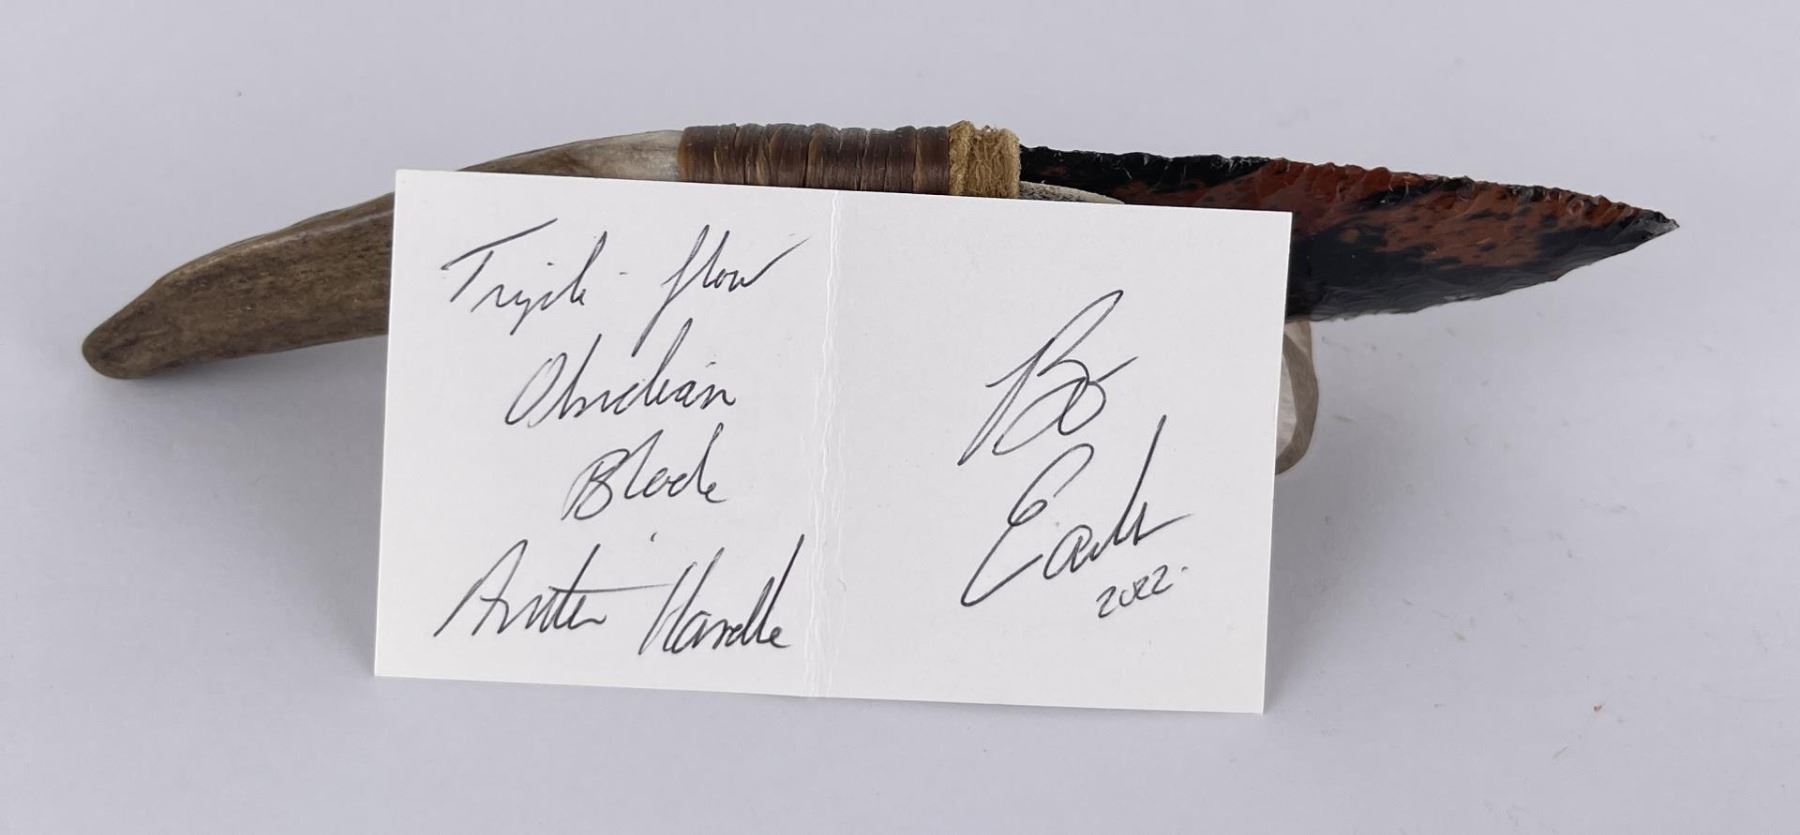 Triple flow
Obsidian
Blade
Antler Handle
Bo
Earls
2022.